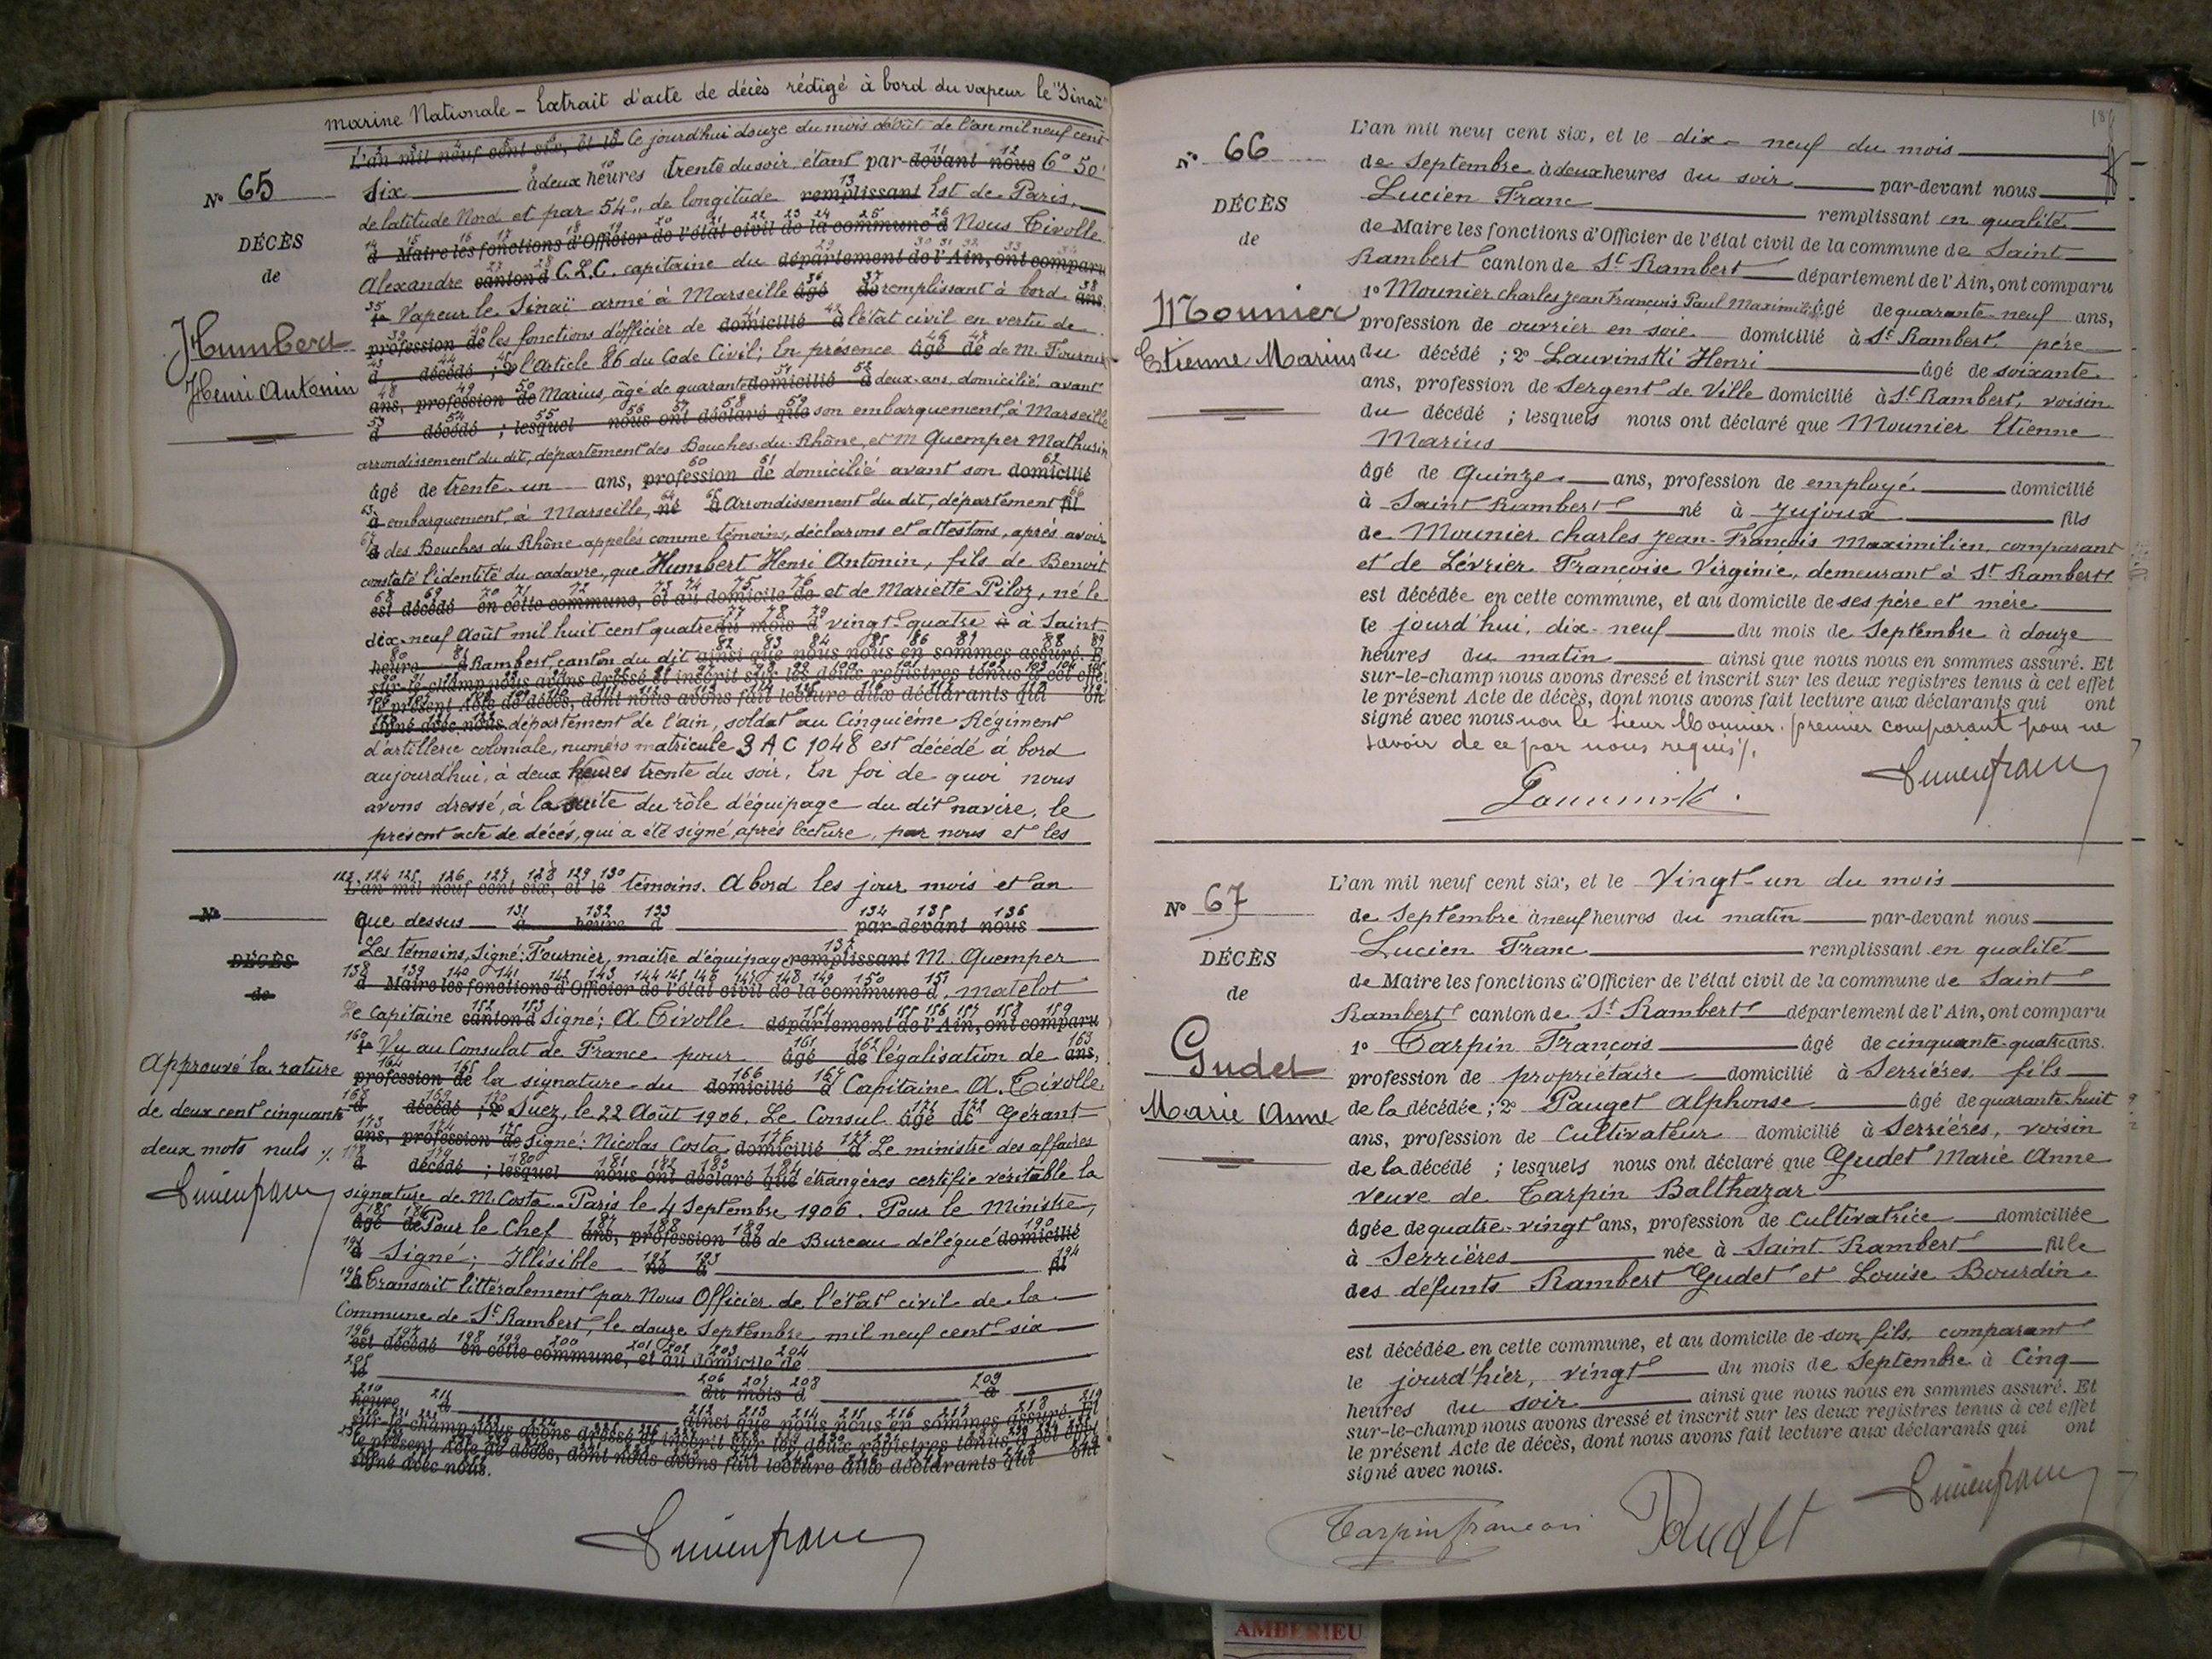 Marine Nationale - Extrait d'acte de décès rédigé à bord du vapeur le "Sinaï"
L'an mil neuf cent six, et le Ce jourd'hui douze du mois d'Août de l'an mil neuf cent
N° 65
six à deux heures trente du soir, étant par devant nous 6° 50'
de latitude Nord et par 54° de longitude remplissant Est de Paris,
DÉCÈS
d Maire les fonctions d'Officier de l'état civil de la commune d Nous Tivolle
de
Alexandre canton d C.L.C. capitaine du département de l'Ain, ont comparu
1° Vapeur le Sinaï armé à Marseille âgé de remplissant à bord ans,
Humbert
profession de les fonctions d'officier de domicilié à l'état civil en vertu de
d décédé ; 2° l'Article 86 du Code Civil; En présence âgé de de M. Fournier
Henri Antonin
ans, profession de Marius, âgé de quarante domicilié à deux ans domicilié avant
d décédé ; lesquel nous ont déclaré que son embarquement, à Marseille
arrondissement du dit, département des Bouches-du-Rhône, et M Quemper Mathurin
âgé de trente-un ans, profession de domicilié avant son domicilié
à embarquement, à Marseille, né à Arrondissement du dit, département fil
d des Bouches du Rhône appelés comme témoins, déclarons et attestons, après avoir
constaté l'identité du cadavre, que Humbert Henri Antonin, fils de Benoit
est décédé en cette commune, et au domicile de et de Mariette Piloz, né le
dix-neuf Août mil huit cent quatre du mois d vingt-quatre à à Saint
heure d Rambert, canton du dit ainsi que nous nous en sommes assuré. Et
sur-le-champ nous avons dressé et inscrit sur les deux registres tenus à cet effet
le présent Acte de décès, dont nous avons fait lecture aux déclarants qui ont
signé avec nous. département de l'ain, soldat au Cinquième Régiment
d'artillerie coloniale, numéro matricule 3 A C 1048 est décédé à bord
aujourd'hui, à deux heures trente du soir. En foi de quoi nous
avons dressé, à la suite du rôle d'équipage du dit navire, le
présent acte de décès, qui a été signé, après lecture, par nous et les
L'an mil neuf cent six, et le témoins. A bord les jour mois et an
N°
que dessus à heure d par-devant nous
Les témoins, Signé: Fournier, maître d'équipage remplissant M. Quemper
DÉCÈS
d Maire les fonctions d'Officier de l'état civil de la commune d matelot
de
Le Capitaine canton d Signé; A Tivolle département de l'Ain, ont comparu
1° Vu au Consulat de France pour âgé de légalisation de ans,
Approuvé la rature
profession de la signature du domicilié à Capitaine A. Tivolle.
de deux cent cinquante
d décédé ; 2° Suez, le 22 Août 1906. Le Consul âgé de Gérant
deux mots nuls
ans, profession de Signé: Nicolas Costa domicilié à Le ministre des affaires
d décédé ; lesquel nous ont déclaré que étrangères certifie véritable la
signature de M. Costa. Paris le 4 Septembre 1906. Pour le Ministre,
âgé de Pour le Chef ans, profession de de Bureau délégué domicilié
à Signé; Illisible né à fil
d Transcrit littéralement par Nous Officier de l'état civil de la
Commune de St Rambert, le douze Septembre mil neuf cent six
est décédé en cette commune, et au domicile de
le
du mois d à
heure d
ainsi que nous nous en sommes assuré. Et
sur-le-champ nous avons dressé et inscrit sur les deux registres tenus à cet effet
le présent Acte de décès, dont nous avons fait lecture aux déclarants qui ont
signé avec nous.
L'an mil neuf cent six, et le dix-neuf du mois
N° 66
de Septembre à deux heures du soir par-devant nous
Lucien Franc remplissant en qualité
DÉCÈS
de Maire les fonctions d'Officier de l'état civil de la commune de Saint
de
Rambert canton de St Rambert département de l'Ain, ont comparu
1° Mounier Charles Jean François Paul Maximilien âgé de quarante-neuf ans,
Mounier
profession de ouvrier en soie domicilié à St Rambert, père
Etienne Marius
du décédé ; 2° Lauvinski Henri âgé de soixante
ans, profession de Sergent de Ville domicilié à St Rambert, voisin
du décédé ; lesquels nous ont déclaré que Mounier Etienne
Marius
âgé de Quinze ans, profession de employé domicilié
à Saint Rambert né à Jujoux fils
de Mounier Charles Jean-François Maximilien, comparant
et de Lévrier Françoise Virginie, demeurant à St Rambert
est décédée en cette commune, et au domicile de ses père et mère
le jourd'hui, dix-neuf du mois de Septembre à douze
heures du matin ainsi que nous nous en sommes assuré. Et
sur-le-champ nous avons dressé et inscrit sur les deux registres tenus à cet effet
le présent Acte de décès, dont nous avons fait lecture aux déclarants qui ont
signé avec nous non le sieur Mounier, premier comparant pour ne
savoir de ce par nous requis.
L'an mil neuf cent six, et le Vingt-un du mois
N° 67
de Septembre à neuf heures du matin par-devant nous
Lucien Franc remplissant en qualité
DÉCÈS
de Maire les fonctions d'Officier de l'état civil de la commune de Saint
de
Rambert canton de St Rambert département de l'Ain, ont comparu
1° Tarpin François âgé de cinquante-quatre ans.
Gudet
profession de propriétaire domicilié à Serrières, fils
Marie Anne
de la décédée ; 2° Pauget Alphonse âgé de quarante-huit
ans, profession de Cultivateur domicilié à Serrières, voisin
de la décédé ; lesquels nous ont déclaré que Gudet Marie Anne
veuve de Tarpin Balthazar
âgée de quatre-vingt ans, profession de Cultivatrice domiciliée
à Serrières née à Saint Rambert fille
des défunts Rambert Gudet et Louise Bourdin
est décédée en cette commune, et au domicile de son fils, comparant
le jourd'hier, vingt du mois de Septembre à Cinq
heures du soir ainsi que nous nous en sommes assuré. Et
sur-le-champ nous avons dressé et inscrit sur les deux registres tenus à cet effet
le présent Acte de décès, dont nous avons fait lecture aux déclarants qui ont
signé avec nous.
Tarpin françois
AMBERIEU